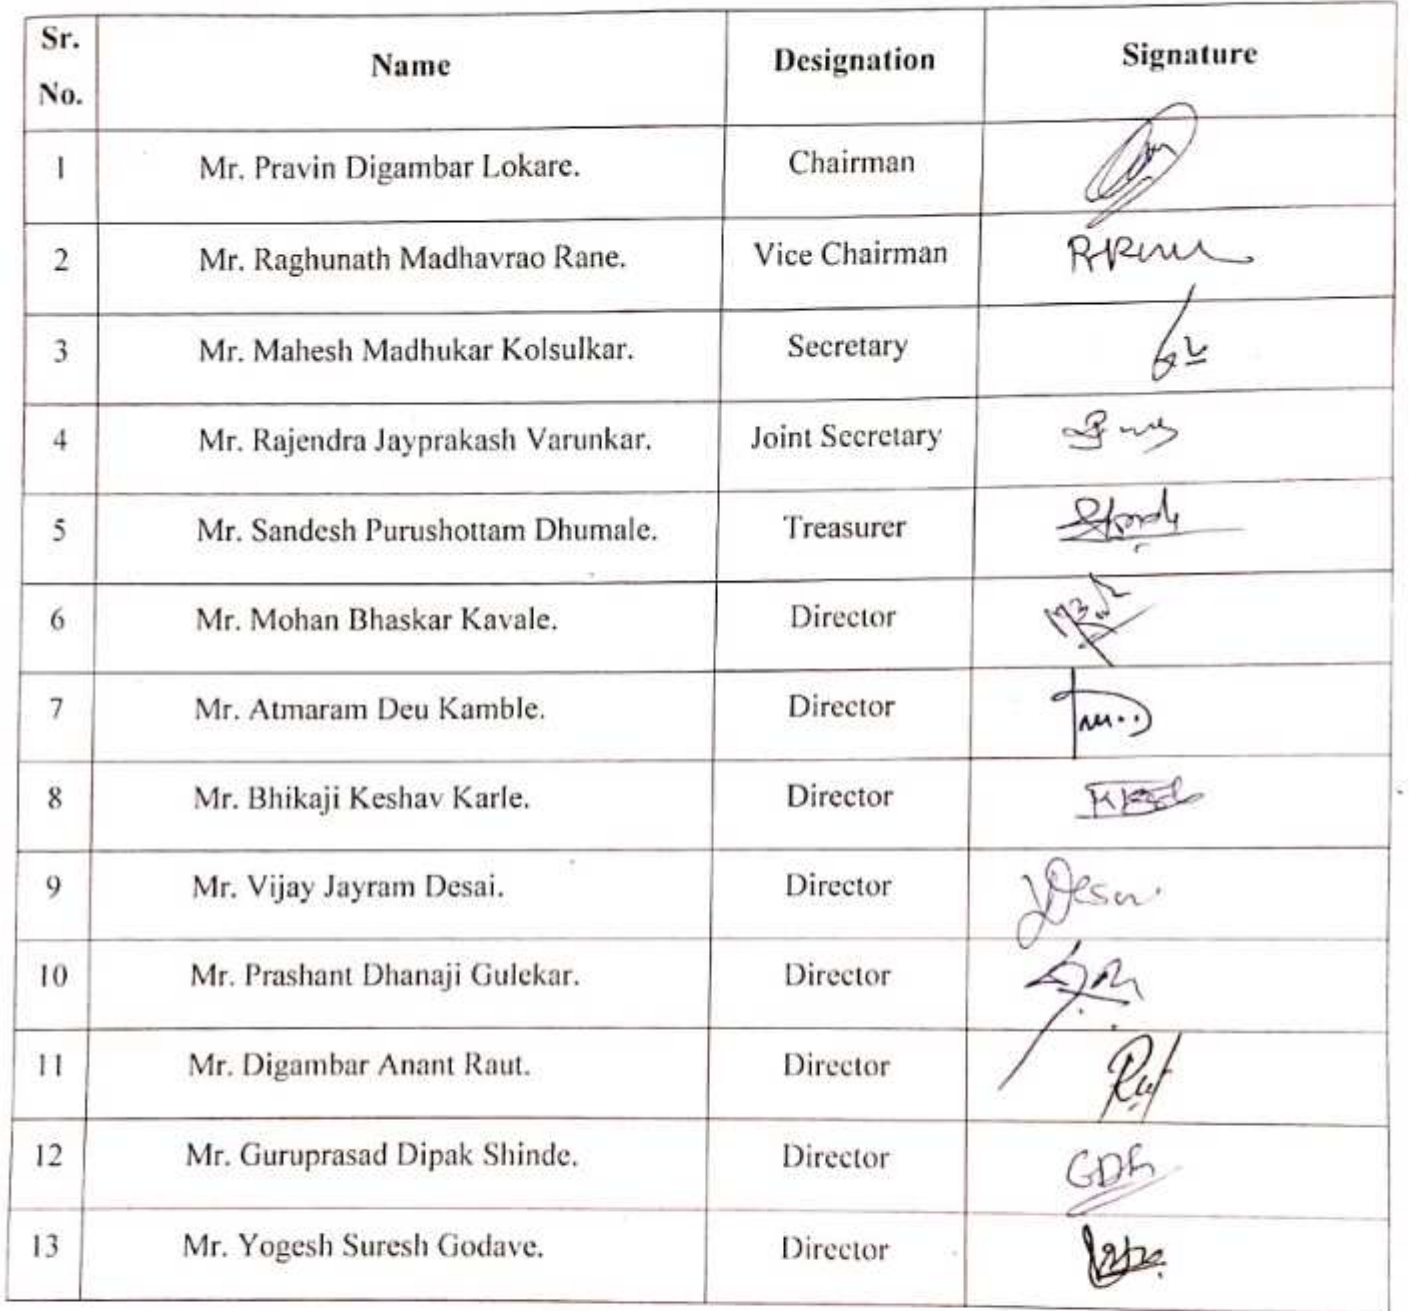 Sr. No. Name Designation Signature
1 Mr. Pravin Digambar Lokare. Chairman
2 Mr. Raghunath Madhavrao Rane. Vice Chairman
3 Mr. Mahesh Madhukar Kolsulkar. Secretary
4 Mr. Rajendra Jayprakash Varunkar. Joint Secretary
5 Mr. Sandesh Purushottam Dhumale. Treasurer
6 Mr. Mohan Bhaskar Kavale. Director
7 Mr. Atmaram Deu Kamble. Director
8 Mr. Bhikaji Keshav Karle. Director
9 Mr. Vijay Jayram Desai. Director
10 Mr. Prashant Dhanaji Gulekar. Director
11 Mr. Digambar Anant Raut. Director
12 Mr. Guruprasad Dipak Shinde. Director
13 Mr. Yogesh Suresh Godave. Director